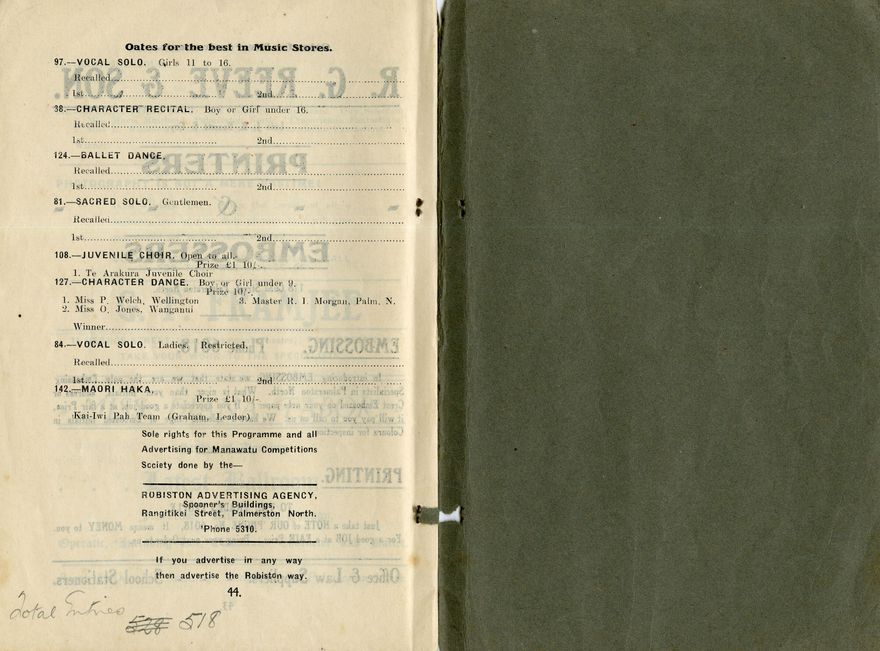 Oates for the best in Music Stores.
97.—VOCAL SOLO. Girls 11 to 16.
Recalled
1st 2nd
38.—CHARACTER RECITAL. Boy or Girl under 16.
Recalled
1st 2nd
124.—BALLET DANCE.
Recalled
1st 2nd
81.—SACRED SOLO. Gentlemen.
Recalled
1st 2nd
108.—JUVENILE CHOIR. Open to all.
Prize £1 10/-.
1. Te Arakura Juvenile Choir
127.—CHARACTER DANCE. Boy or Girl under 9.
Prize 10/-.
1. Miss P. Welch, Wellington 3. Master R. I. Morgan, Palm. N.
2. Miss O. Jones, Wanganui
Winner
84.—VOCAL SOLO. Ladies. Restricted.
Recalled
1st 2nd
142.—MAORI HAKA.
Prize £1 10/-
Kai-Iwi Pah Team (Graham, Leader)
Sole rights for this Programme and all
Advertising for Manawatu Competitions
Society done by the—
ROBISTON ADVERTISING AGENCY,
Spooner's Buildings,
Rangitikei Street, Palmerston North.
'Phone 5310.
If you advertise in any way
then advertise the Robiston way.
44.
Total Entries 528 518